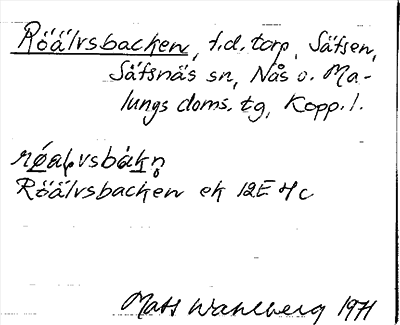 Röälvsbacken, f.d. torp, Säfsen,
Säfsnäs sn, Nås o. Ma-
lungs doms. tg, Kopp. l.
røalvsbàkn̥
Röälvsbacken ek 12E 4c
Mats Wahlberg 1971